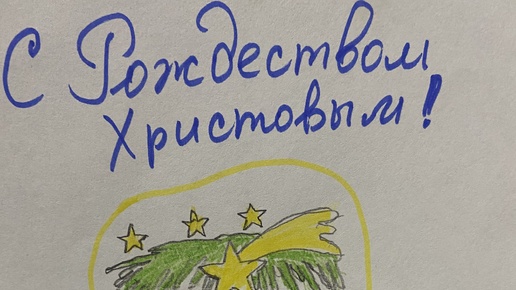 С Рождеством
Христовым!